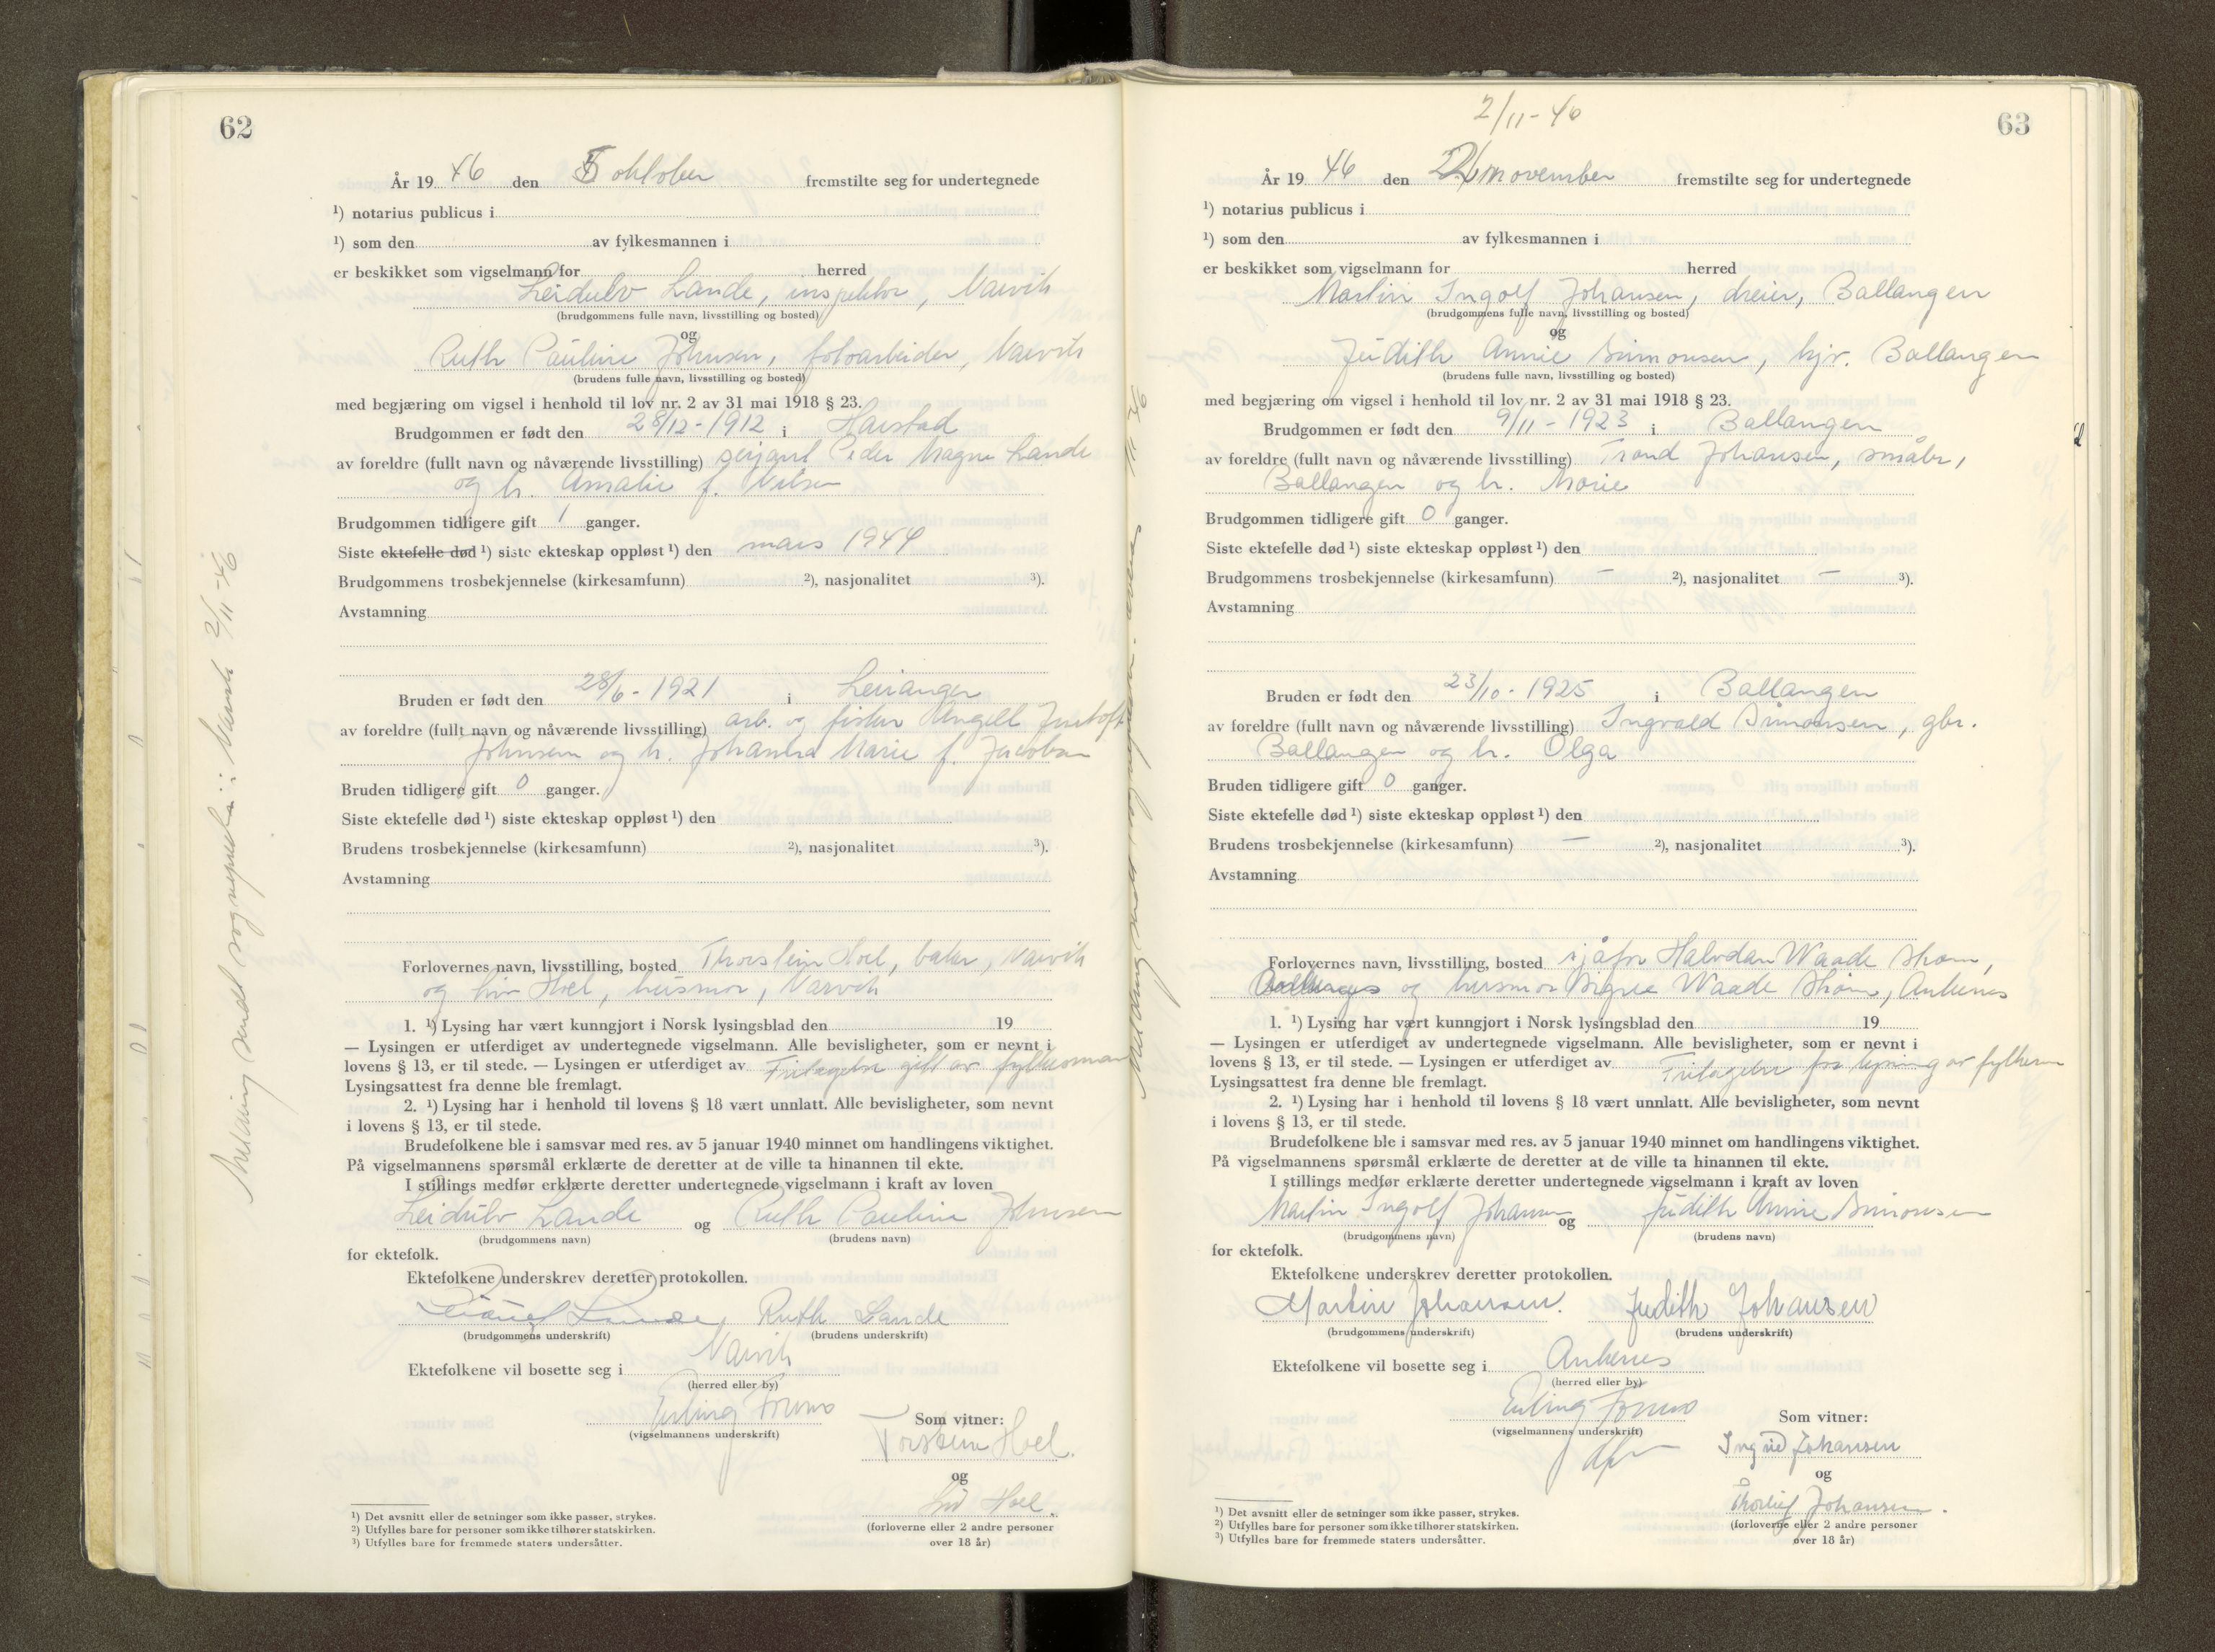 62
År 19 46 den 5 oktober fremstilte seg for undertegnede
¹) notarius publicus i
¹) som den av fylkesmannen i
er beskikket som vigselmann for herred
Leidulv Lande, inspektør, Narvik
(brudgommens fulle navn, livsstilling og bosted)
og
Ruth Pauline Johnsen, fotoarbeider, Narvik
(brudens fulle navn, livsstilling og bosted)
med begjæring om vigsel i henhold til lov nr. 2 av 31 mai 1918 § 23.
Brudgommen er født den 28/12-1912 i Harstad
av foreldre (fullt navn og nåværende livsstilling) serjant Peder Magne Lande
og h. Amalie f. Nilsen
Brudgommen tidligere gift 1 ganger.
Siste ektefelle død ¹) siste ekteskap oppløst ¹) den mars 1944
Brudgommens trosbekjennelse (kirkesamfunn) ²), nasjonalitet ³).
Avstamning
Bruden er født den 28/6-1921 i Leiranger
av foreldre (fullt navn og nåværende livsstilling) arb. og fisker Angell
Johnsen og h. Johanna Marie f. Jacobsen
Bruden tidligere gift 0 ganger.
Siste ektefelle død ¹) siste ekteskap oppløst ¹) den
Brudens trosbekjennelse (kirkesamfunn) ²), nasjonalitet ³).
Avstamning
Forlovernes navn, livsstilling, bosted Thorstein Hoel, baker, Narvik
og fru Hoel, husmor, Narvik
1. ¹) Lysing har vært kunngjort i Norsk lysingsblad den 19
— Lysingen er utferdiget av undertegnede vigselmann. Alle bevisligheter, som er nevnt i
lovens § 13, er til stede. — Lysingen er utferdiget av Fritagelse gitt av fylkesman
Lysingsattest fra denne ble fremlagt.
2. ¹) Lysing har i henhold til lovens § 18 vært unnlatt. Alle bevisligheter, som nevnt
i lovens § 13, er til stede.
Brudefolkene ble i samsvar med res. av 5 januar 1940 minnet om handlingens viktighet.
På vigselmannens spørsmål erklærte de deretter at de ville ta hinannen til ekte.
I stillings medfør erklærte deretter undertegnede vigselmann i kraft av loven
Leidulv Lande og Ruth Pauline Johnsen
(brudgommens navn) (brudens navn)
for ektefolk.
Ektefolkene underskrev deretter protokollen.
Lande Ruth Lande
(brudgommens underskrift) (brudens underskrift)
Ektefolkene vil bosette seg i Narvik
(herred eller by)
Erling
(vigselmannens underskrift)
Som vitner:
Torstein Hoel.
og
Hoel.
(forloverne eller 2 andre personer
over 18 år)
¹) Det avsnitt eller de setninger som ikke passer, strykes.
²) Utfylles bare for personer som ikke tilhører statskirken.
³) Utfylles bare for fremmede staters undersåtter.
Melding sendt sognepresten i Narvik 2/11-46
2/11-46
63
År 19 46 den 2 november fremstilte seg for undertegnede
¹) notarius publicus i
¹) som den av fylkesmannen i
er beskikket som vigselmann for herred
Martin Ingolf Johansen, dreier, Ballangen
(brudgommens fulle navn, livsstilling og bosted)
og
Judith Annie Simonsen, hjv. Ballangen
(brudens fulle navn, livsstilling og bosted)
med begjæring om vigsel i henhold til lov nr. 2 av 31 mai 1918 § 23.
Brudgommen er født den 9/11-1923 i Ballangen
av foreldre (fullt navn og nåværende livsstilling) Trond Johansen, småbr,
Ballangen og h. Marie
Brudgommen tidligere gift 0 ganger.
Siste ektefelle død ¹) siste ekteskap oppløst ¹) den
Brudgommens trosbekjennelse (kirkesamfunn) — ²), nasjonalitet — ³).
Avstamning
Bruden er født den 23/10-1925 i Ballangen
av foreldre (fullt navn og nåværende livsstilling) Ingvald Simonsen, gbr.
Ballangen og h. Olga
Bruden tidligere gift 0 ganger.
Siste ektefelle død ¹) siste ekteskap oppløst ¹) den
Brudens trosbekjennelse (kirkesamfunn) — ²), nasjonalitet ³).
Avstamning
Forlovernes navn, livsstilling, bosted sjåfør Halvdan Waade
og husmor Signe Waade Ankenes
1. ¹) Lysing har vært kunngjort i Norsk lysingsblad den 19
— Lysingen er utferdiget av undertegnede vigselmann. Alle bevisligheter, som er nevnt i
lovens § 13, er til stede. — Lysingen er utferdiget av Fritagelse fra lysing av fylkesm
Lysingsattest fra denne ble fremlagt.
2. ¹) Lysing har i henhold til lovens § 18 vært unnlatt. Alle bevisligheter, som nevnt
i lovens § 13, er til stede.
Brudefolkene ble i samsvar med res. av 5 januar 1940 minnet om handlingens viktighet.
På vigselmannens spørsmål erklærte de deretter at de ville ta hinannen til ekte.
I stillings medfør erklærte deretter undertegnede vigselmann i kraft av loven
Martin Ingolf Johansen og Judith Annie Simonsen
(brudgommens navn) (brudens navn)
for ektefolk.
Ektefolkene underskrev deretter protokollen.
Martin Johansen. Judith Johansen
(brudgommens underskrift) (brudens underskrift)
Ektefolkene vil bosette seg i Ankenes
(herred eller by)
Erling
(vigselmannens underskrift)
Som vitner:
Ingrid Johansen
og
Thorleif Johansen.
(forloverne eller 2 andre personer
over 18 år)
¹) Det avsnitt eller de setninger som ikke passer, strykes.
²) Utfylles bare for personer som ikke tilhører statskirken.
³) Utfylles bare for fremmede staters undersåtter.